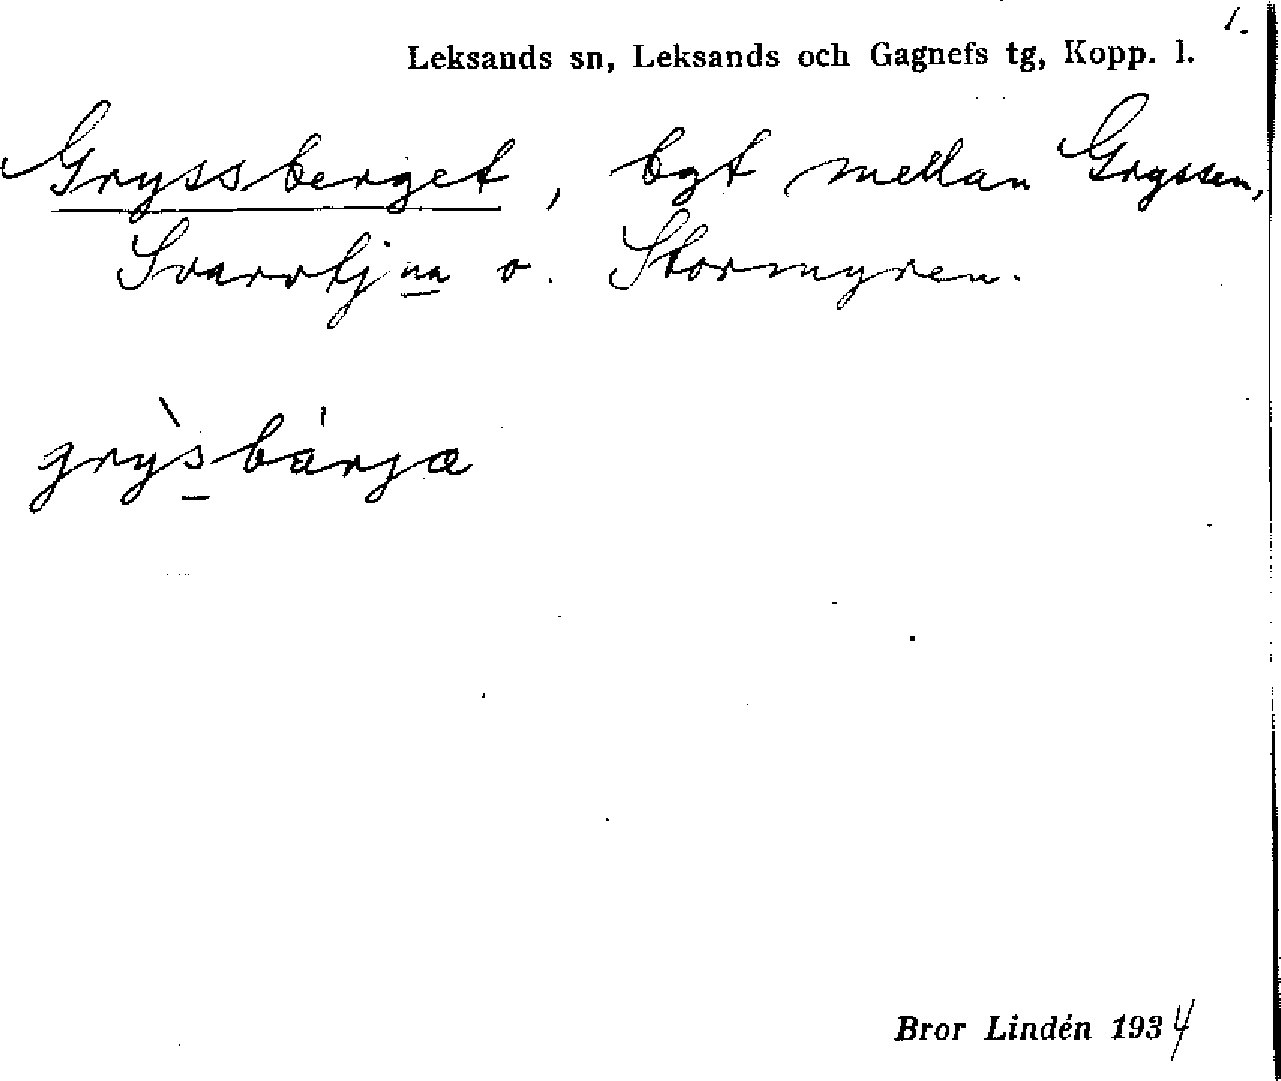 1.
Leksands sn, Leksands och Gagnefs tg, Kopp. l.
Gryssberget, bgt mellan Gryssen,
Svarvtjna o. Stormyren.
grỳsbárja
Bror Lindén 1934